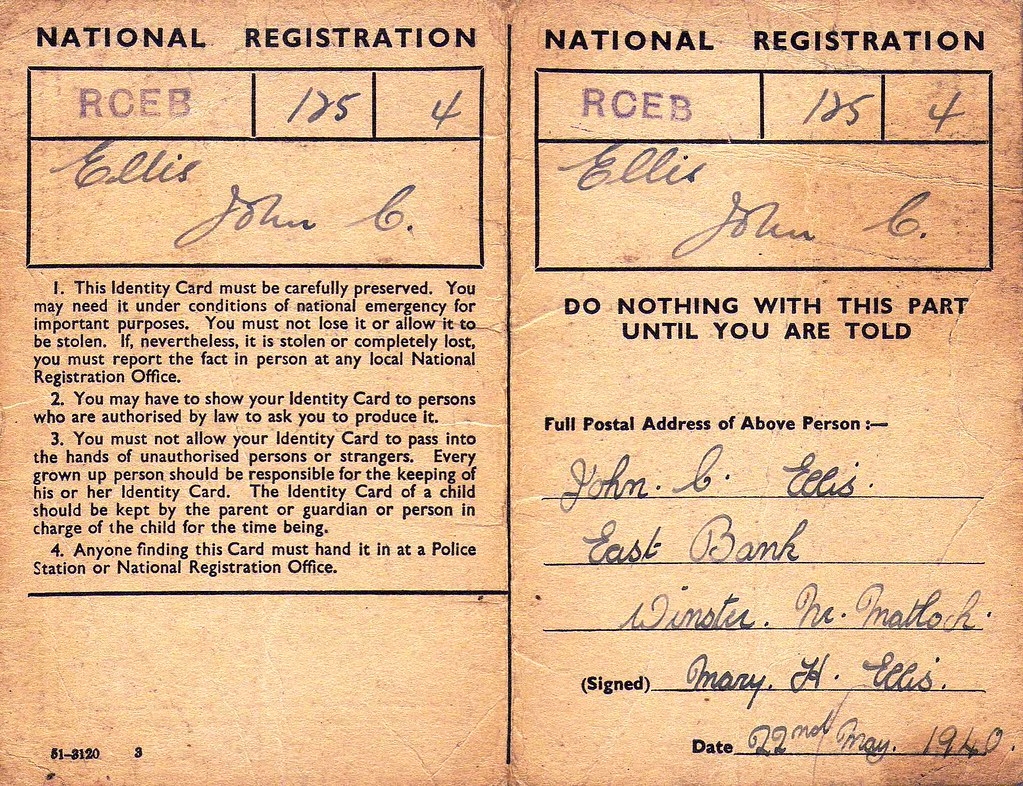 NATIONAL REGISTRATION
RCEB 125 4
Ellis
John C.
1. This Identity Card must be carefully preserved. You
may need it under conditions of national emergency for
important purposes. You must not lose it or allow it to
be stolen. If, nevertheless, it is stolen or completely lost,
you must report the fact in person at any local National
Registration Office.
2. You may have to show your Identity Card to persons
who are authorised by law to ask you to produce it.
3. You must not allow your Identity Card to pass into
the hands of unauthorised persons or strangers. Every
grown up person should be responsible for the keeping of
his or her Identity Card. The Identity Card of a child
should be kept by the parent or guardian or person in
charge of the child for the time being.
4. Anyone finding this Card must hand it in at a Police
Station or National Registration Office.
51-3120 3
NATIONAL REGISTRATION
RCEB 125 4
Ellis
John C.
DO NOTHING WITH THIS PART
UNTIL YOU ARE TOLD
Full Postal Address of Above Person :—
John. C. Ellis.
East Bank
Winster. Nr. Matlock.
(Signed) Mary. H. Ellis.
Date 22nd May. 1940.